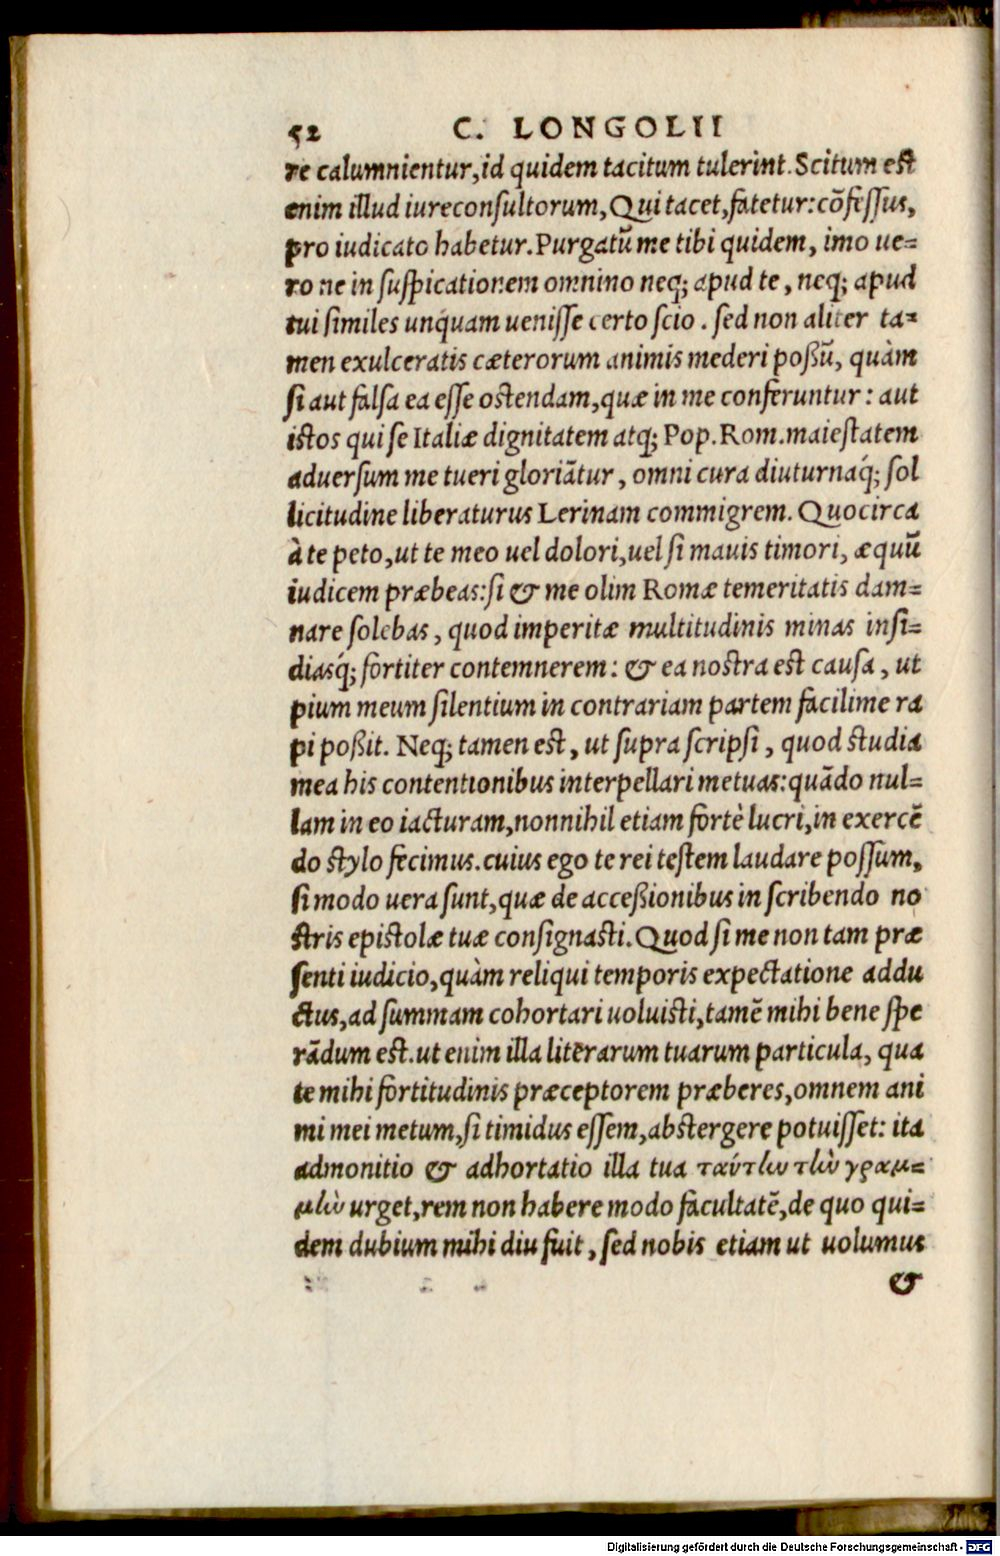 52 C. LONGOLII
re calumnientur, id quidem tacitum tulerint. Scitum est
enim illud iureconsultorum, Qui tacet, fatetur: cõfessus,
pro iudicato habetur. Purgatũ me tibi quidem, imo ue=
ro ne in suspicationem omnino neq; apud te, neq; apud
tui similes unquam uenisse certo scio. sed non aliter ta=
men exulceratis cæterorum animis mederi poßũ, quàm
si aut falsa ea esse ostendam, quæ in me conferuntur: aut
istos qui se Italiæ dignitatem atq; Pop. Rom. maiestatem
aduersum me tueri gloriãtur, omni cura diuturnaq́; sol
licitudine liberaturus Lerinam commigrem. Quocirca
à te peto, ut te meo uel dolori, uel si mauis timori, æquũ
iudicem præbeas: si & me olim Romæ temeritatis dam=
nare solebas, quod imperitæ multitudinis minas insi=
diasq́; fortiter contemnerem: & ea nostra est causa, ut
pium meum silentium in contrariam partem facilime ra
pi poßit. Neq; tamen est, ut supra scripsi, quod studia
mea his contentionibus interpellari metuas: quãdo nul=
lam in eo iacturam, nonnihil etiam fortè lucri, in exercẽ
do stylo fecimus. cuius ego te rei testem laudare possum,
si modo uera sunt, quæ de acceßionibus in scribendo no
stris epistolæ tuæ consignasti. Quod si me non tam præ
senti iudicio, quàm reliqui temporis expectatione addu
ctus, ad summam cohortari uoluisti, tamẽ mihi bene spe
rãdum est. ut enim illa literarum tuarum particula, qua
te mihi fortitudinis præceptorem præberes, omnem ani
mi mei metum, si timidus essem, abstergere potuisset: ita
admonitio & adhortatio illa tua ταύτην τὴν γραμ=
μὴν urget, rem non habere modo facultatẽ, de quo qui=
dem dubium mihi diu fuit, sed nobis etiam ut uolumus
&
Digitalisierung gefördert durch die Deutsche Forschungsgemeinschaft - DFG